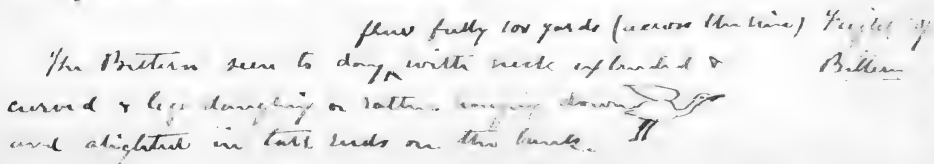 flew fully 100 yards (across the river) Flight of
The Bittern seen to day with neck extended & Bittern
curved & legs dangling or rather hanging down
and alighted in tall reeds on the bank.